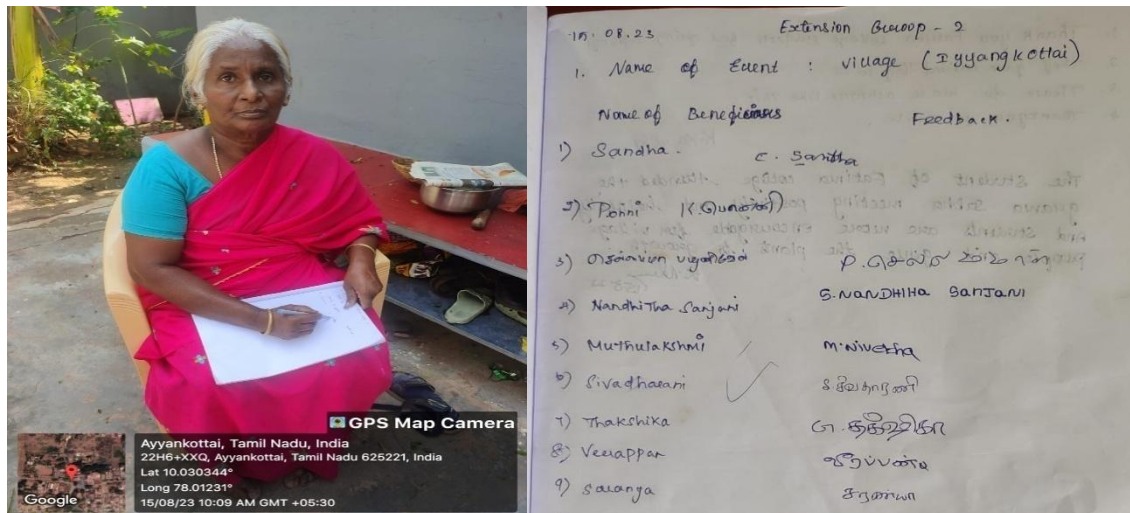 GPS Map Camera
Ayyankottai, Tamil Nadu, India
22H6+XXQ, Ayyankottai, Tamil Nadu 625221, India
Lat 10.030344°
Long 78.01231°
15/08/23 10:09 AM GMT +05:30
Google
08.23 Extension Group - 2
1. Name of Event : Village (Iyyangkottai)
Name of Feedback.
1) Sandha. C. Santha
2) Ponni K.பொன்னி
3)
4) Nandhitha Sanjani S.NANDHIHA SANJANI
5) Muthulakshmi M.Nivetha
6) Sivadharani S.சிவதாரணி
7) Thakshika
8) Veerappan வீரப்பன்
9) Saranya சரண்யா